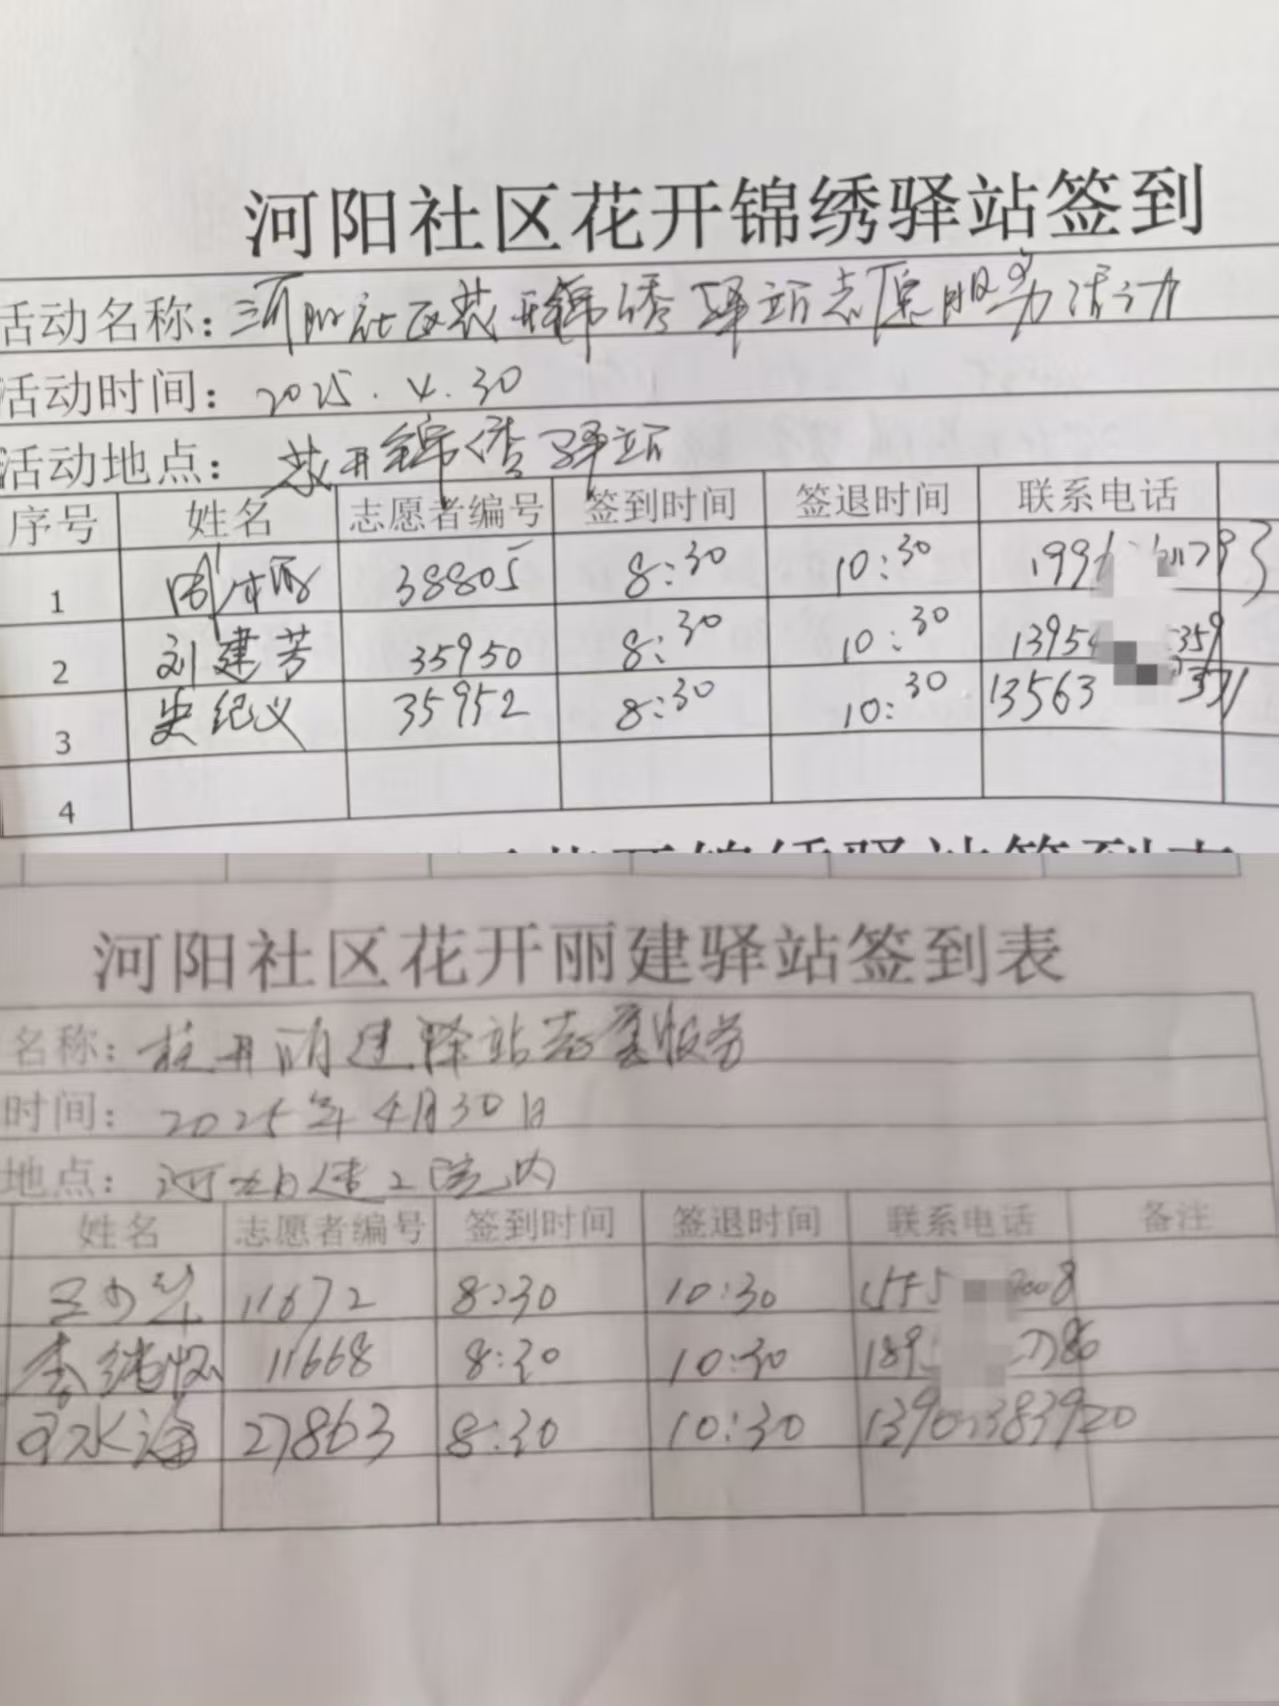 河阳社区花开锦绣驿站签到
活动名称：河阳社区花开锦绣驿站志愿服务活动
活动时间：2025.4.30
活动地点：花开锦绣驿站
序号 姓名 志愿者编号 签到时间 签退时间 联系电话
1 38805 8:30 10:30
2 刘建芳 35950 8:30 10:30 1395 359
3 史纪义 35952 8:30 10:30 13563
4
河阳社区花开丽建驿站签到表
名称：花开丽建驿站志愿服务
时间：2025年4月30日
地点：河阳建工院内
姓名 志愿者编号 签到时间 签退时间 联系电话 备注
11672 8:30 10:30
李 11668 8:30 10:30 189
水海 27863 8:30 10:30